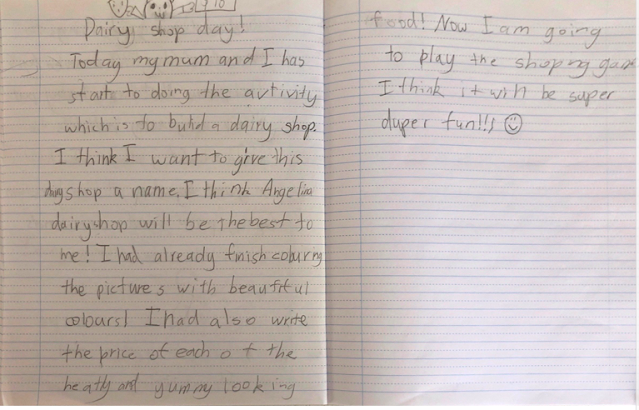 Dairy shop day!
Today my mum and I has
start to doing the avtivity
which is to build a dairy shop.
I think I want to give this
shop a name. I think Angelina
dairyshop will be thebest to
me! I had already finish colurng
the pictures with beautiful
colours! I had also write
the price of each of the
heatly and yummy looking
food! Now I am going
to play the shoping gam
I think it will be super
duper fun!!!